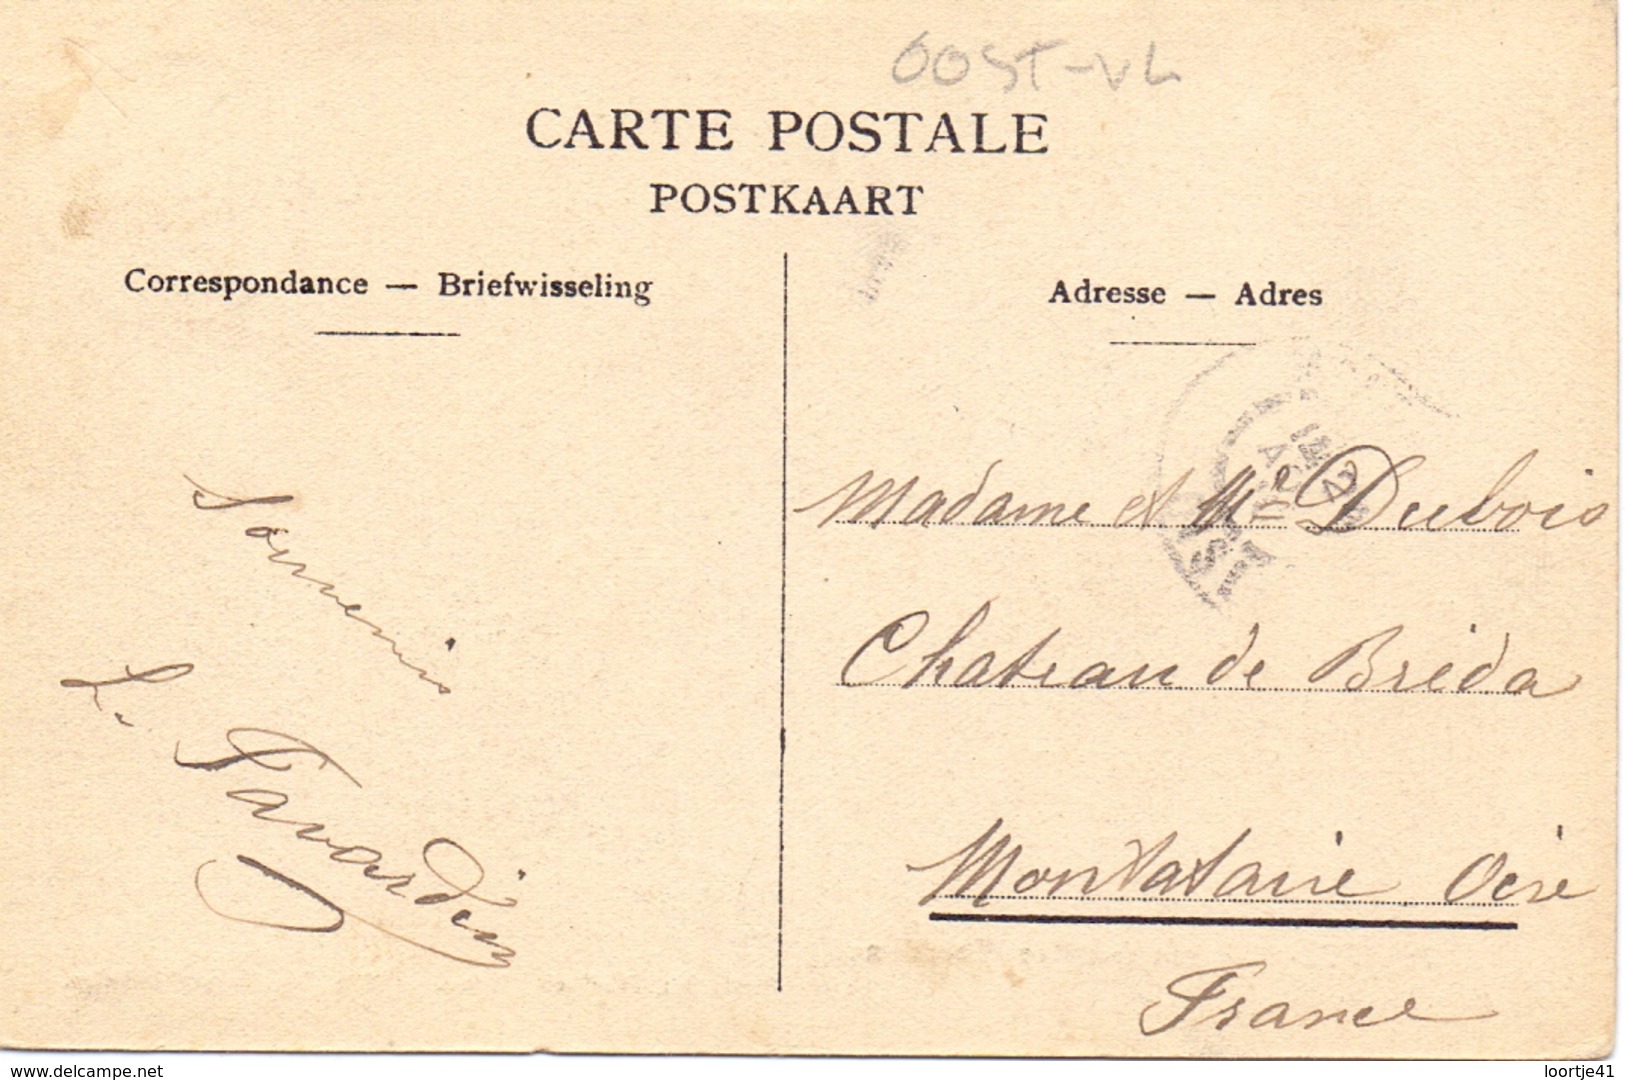 OOST-VL
CARTE POSTALE
POSTKAART
Correspondance — Briefwisseling
Adresse — Adres
Souvenirs
L. Favardin
Madame et Mr Dubois
Chateau de Bréda
Montataire Oise
France
www.delcampe.net
loortje41